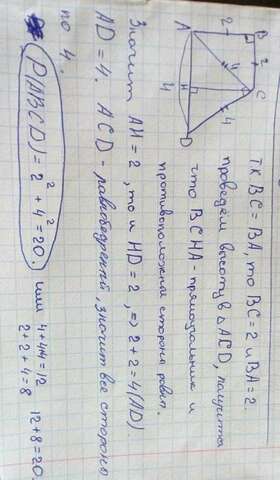 A
2
B
2
C
4
4
H
4
D
Т.К BC = BA, то BC = 2 и BA = 2.
проведём высоту в △ ACD, получится
что BCHA - прямоугольник и
противоположные стороны равны.
Значит AH = 2, то и HD = 2, => 2 + 2 = 4 (AD).
AD = 4. ACD - равнобедренный, значит все стороны
по 4.
P(ABCD) = 2² + 4² = 20. или 4+4+4=12
2+2+4=8 12+8=20.